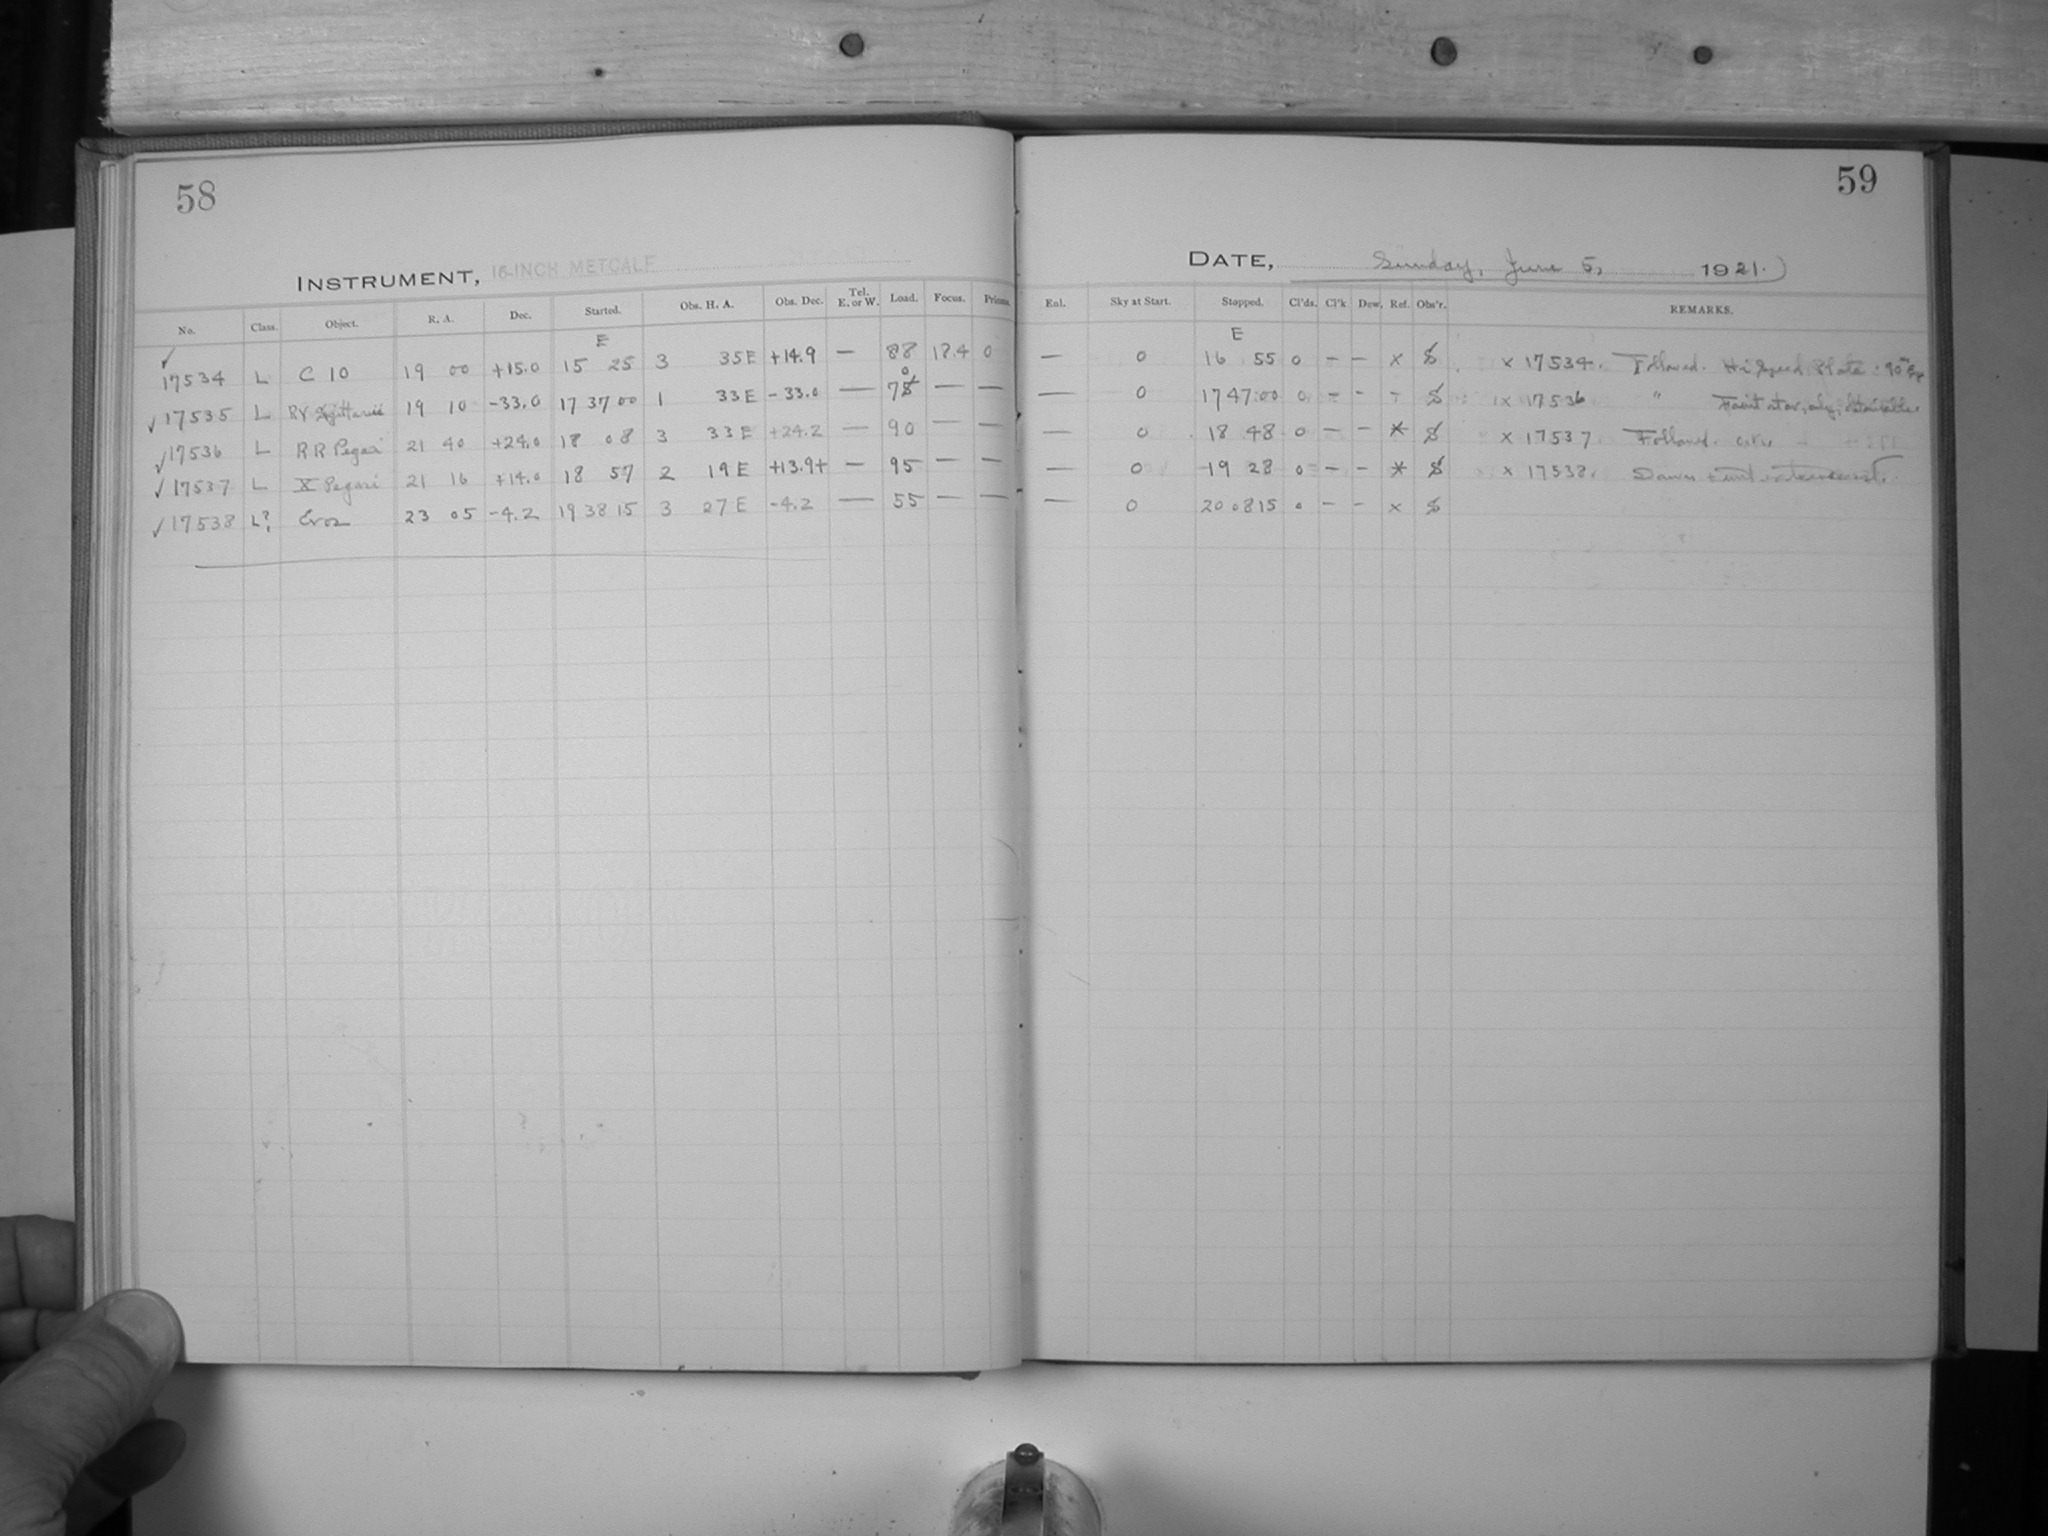 58
INSTRUMENT, 16-INCH METCALF
No. Class. Object. R. A. Dec. Started. Obs. H. A. Obs. Dec. Tel. E. or W. Load. Focus. Prisms
E
✓ 17534 L C 10 19 00 +15.0 15 25 3 35 E +14.9 — 88 12.4 0
✓ 17535 L RY Sgittarii 19 10 -33.0 17 37 00 1 33 E -33.0 — — —
✓ 17536 L RR Pegasi 21 40 +24.0 18 08 3 33 E +24.2 — 90 — —
✓ 17537 L X Pegasi 21 16 +14.0 18 57 2 19 E +13.9+ — 95 — —
✓ 17538 L? Eros 23 05 -4.2 19 38 15 3 27 E -4.2 — 55 — —
59
DATE, Sunday, June 5, 1921.
Enl. Sky at Start. Stopped. Cl'ds. Cl'k Dew. Ref. Obs'r. REMARKS.
E
— 0 16 55 0 - - x x 17534. Followed. Hi Speed Plate
— 0 17 47 00 0 - - - x 17536 " Faint star, only,
— 0 18 48 0 - - x 17537 Followed.
— 0 19 28 0 - - x 17538. Dawn
— 0 20 08 15 0 - - x